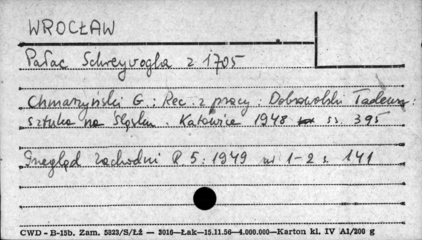 WROCŁAW
Pałac Schreyvogla z 1705
Chmarzyński G.: Rec. z pracy: Dobrowolski Tadeusz:
Sztuka na Śląsku. Katowice 1948 ss. 395
Przegląd Zachodni R 5: 1949 nr 1-2 s. 141
CWD - B-15b. Zam. 5823/S/Łż — 3016—Łak—15.11.56—4.000.000—Karton kl. IV A1/200 g